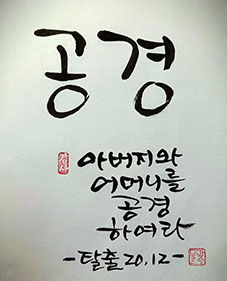 공경
아버지와
어머니를
공경
하여라
-탈출20,12-